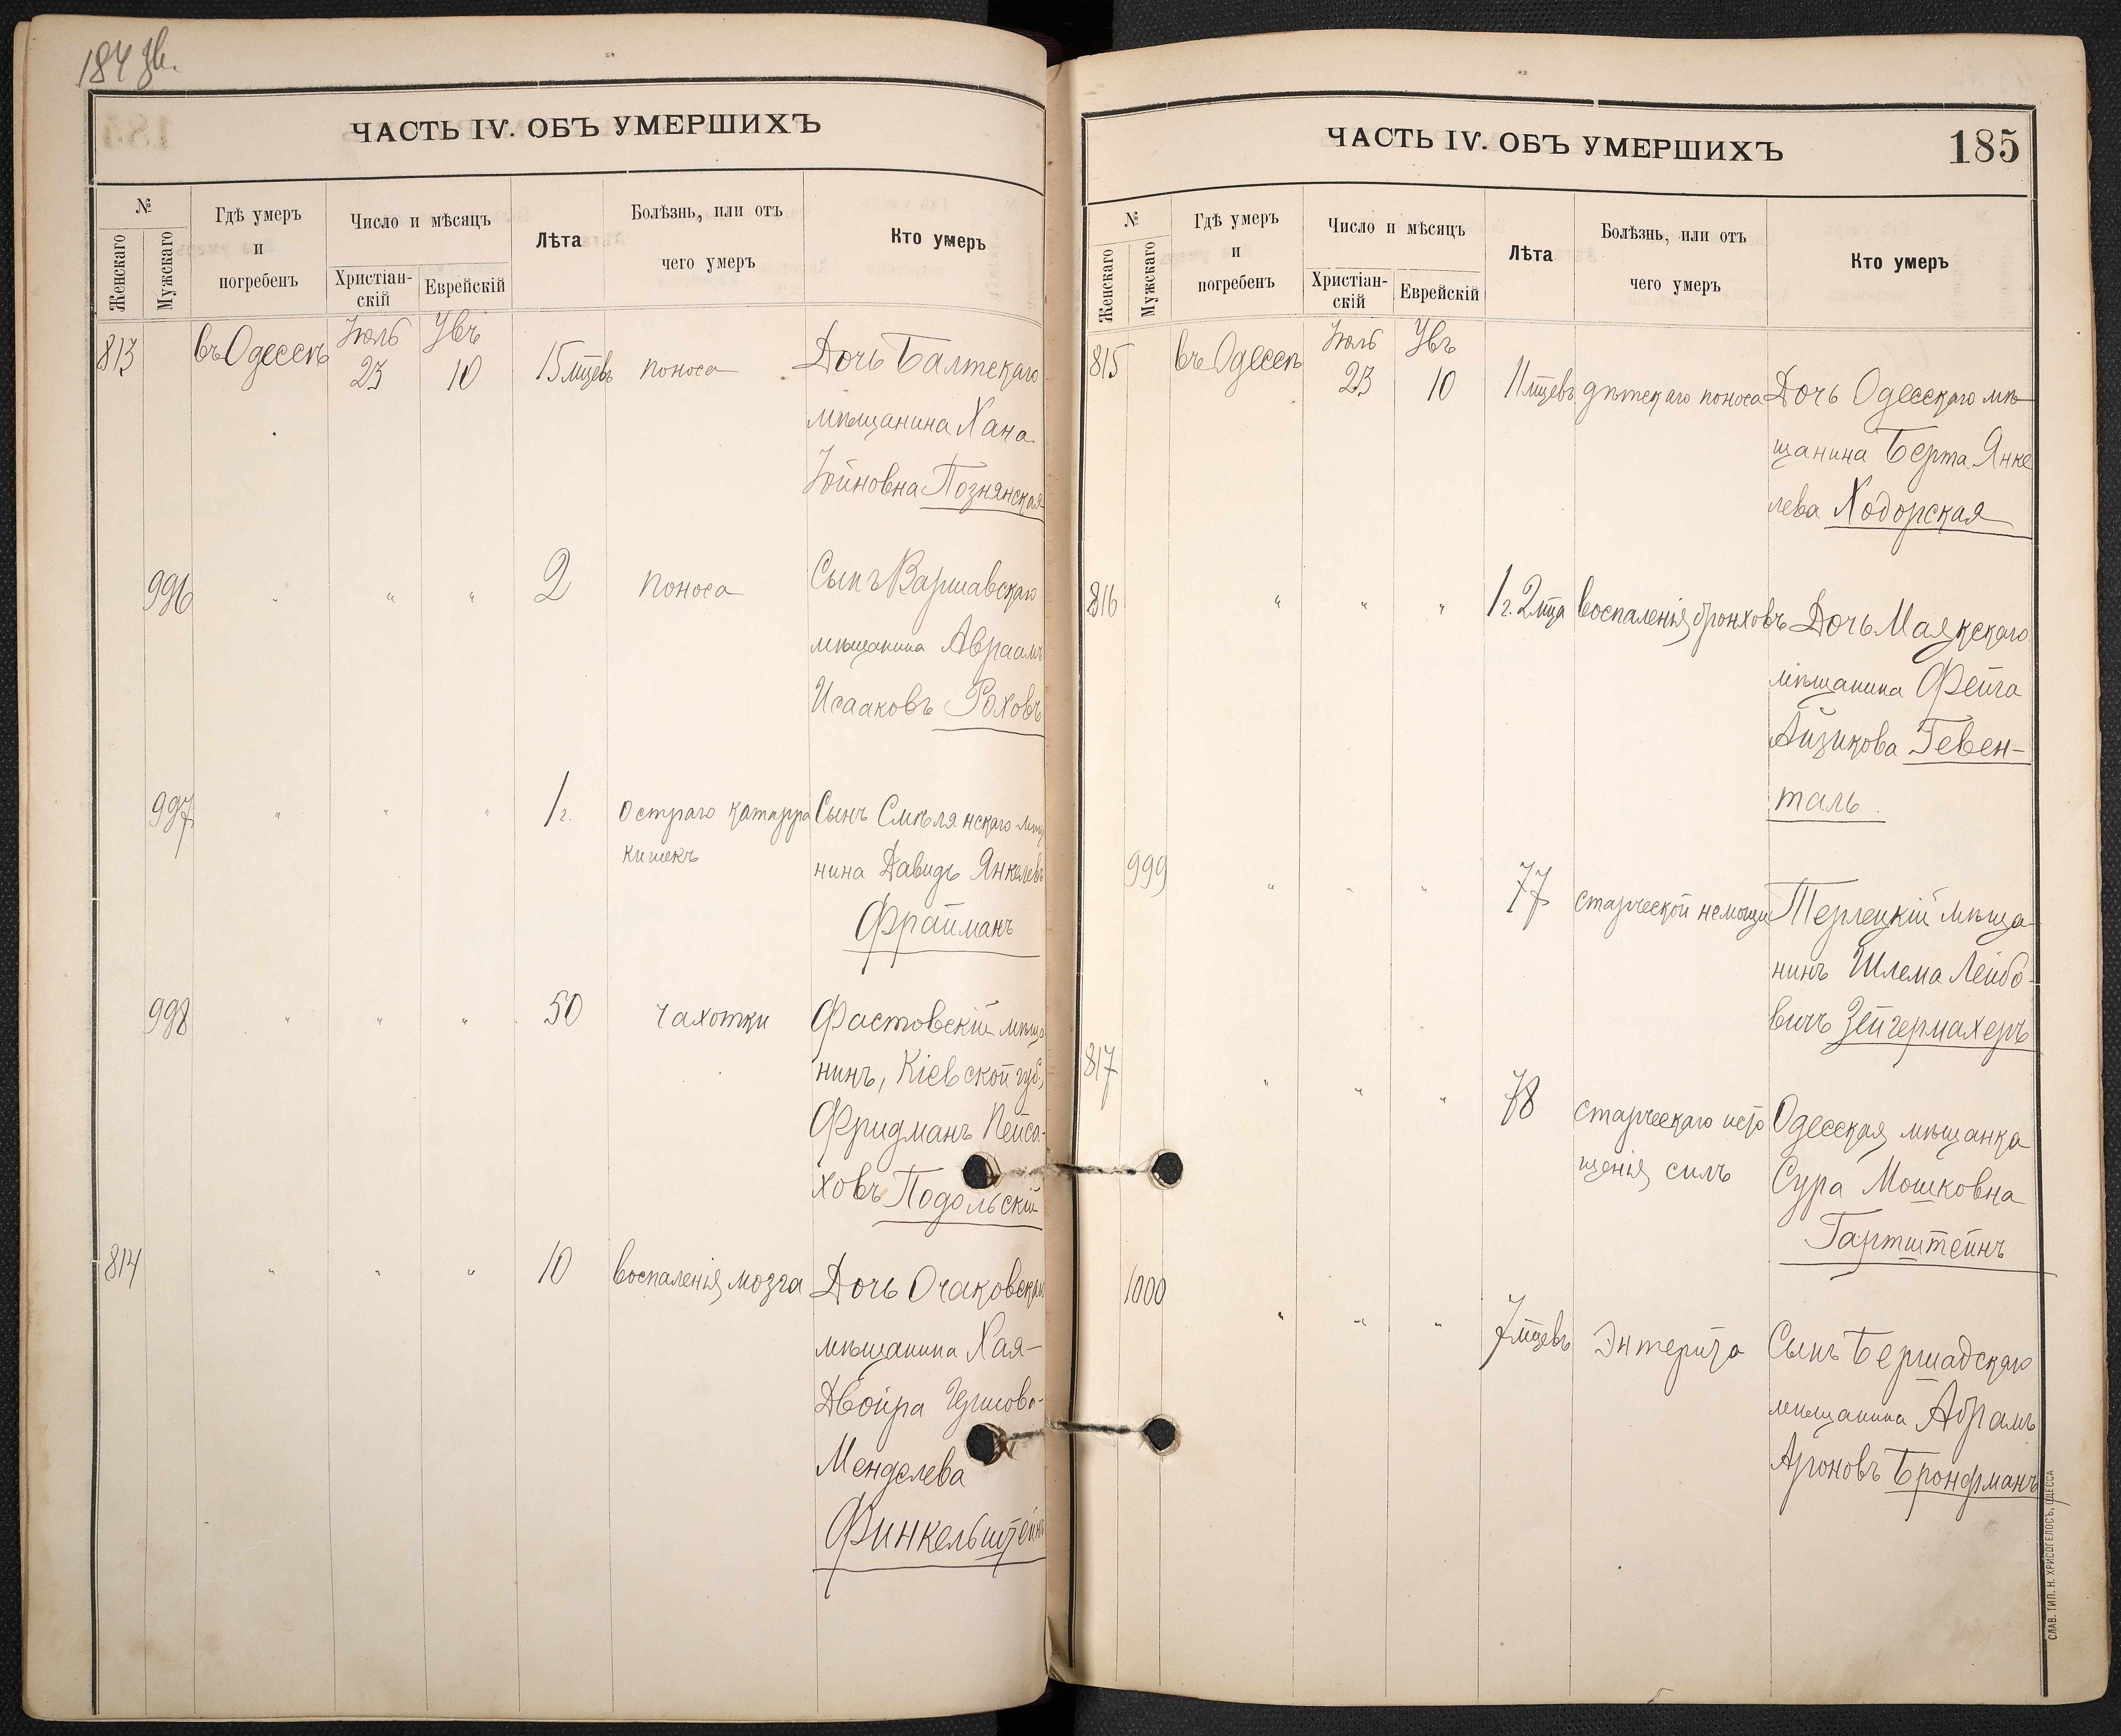 184 зв.
ЧАСТЬ IV. ОБЪ УМЕРШИХЪ
№
Женскаго
Мужскаго
Гдѣ умеръ
и
погребенъ
Число и мѣсяцъ
Христіан-
скій
Еврейскій
Лѣта
Болѣзнь, или отъ
чего умеръ
Кто умеръ
813 въ Одессѣ Іюль 23 Увъ 10 15 мцевъ поноса Дочь Балтскаго
мѣщанина Хана
Іойновна Познянская
996 " " " 2 поноса Сынъ Варшавскаго
мѣщанина Авраамъ
Исааковъ Роховъ
997 " " " 1 г. остраго катарра Сынъ Смѣлянскаго мѣщ
кишекъ нина Давидъ Янкелевъ
Фрайманъ
998 " " " 50 чахотки Фастовскій мѣща
нинъ, Кіевской губ.,
Фридманъ Пейса-
ховъ Подольскій
814 " " " 10 воспаленія мозга Дочь Очаковскаго
мѣщанина Хая-
Двойра
Менделева
Финкельштейнъ
ЧАСТЬ IV. ОБЪ УМЕРШИХЪ
185
№
Женскаго
Мужскаго
Гдѣ умеръ
и
погребенъ
Число и мѣсяцъ
Христіан-
скій
Еврейскій
Лѣта
Болѣзнь, или отъ
чего умеръ
Кто умеръ
815 въ Одессѣ Іюль 23 Увъ 10 11 мцевъ дѣтскаго поноса Дочь Одесскаго мѣ-
щанина Берта Янке
лева Ходорская
816 " " " 1 г. 2 мца воспаленія бронховъ Дочь Маякскаго
мѣщанина Фейга
Айзикова Гевен-
таль.
999 " " " 77 старческой немощи Терлецкій мѣща
нинъ Шлема Лейбо-
вичъ Зейгермахеръ
817 " " " 78 старческаго исто Одесская мѣщанка
щенія силъ Сура Мошковна
Гартштейнъ
1000 " " " 7 мцевъ Энтерита Сынъ Бершадскаго
мѣщанина Абрамъ
Ароновъ Бронфманъ
СЛАВ. ТИП. Н. ХРИСОГЕЛОСЪ, ОДЕССА